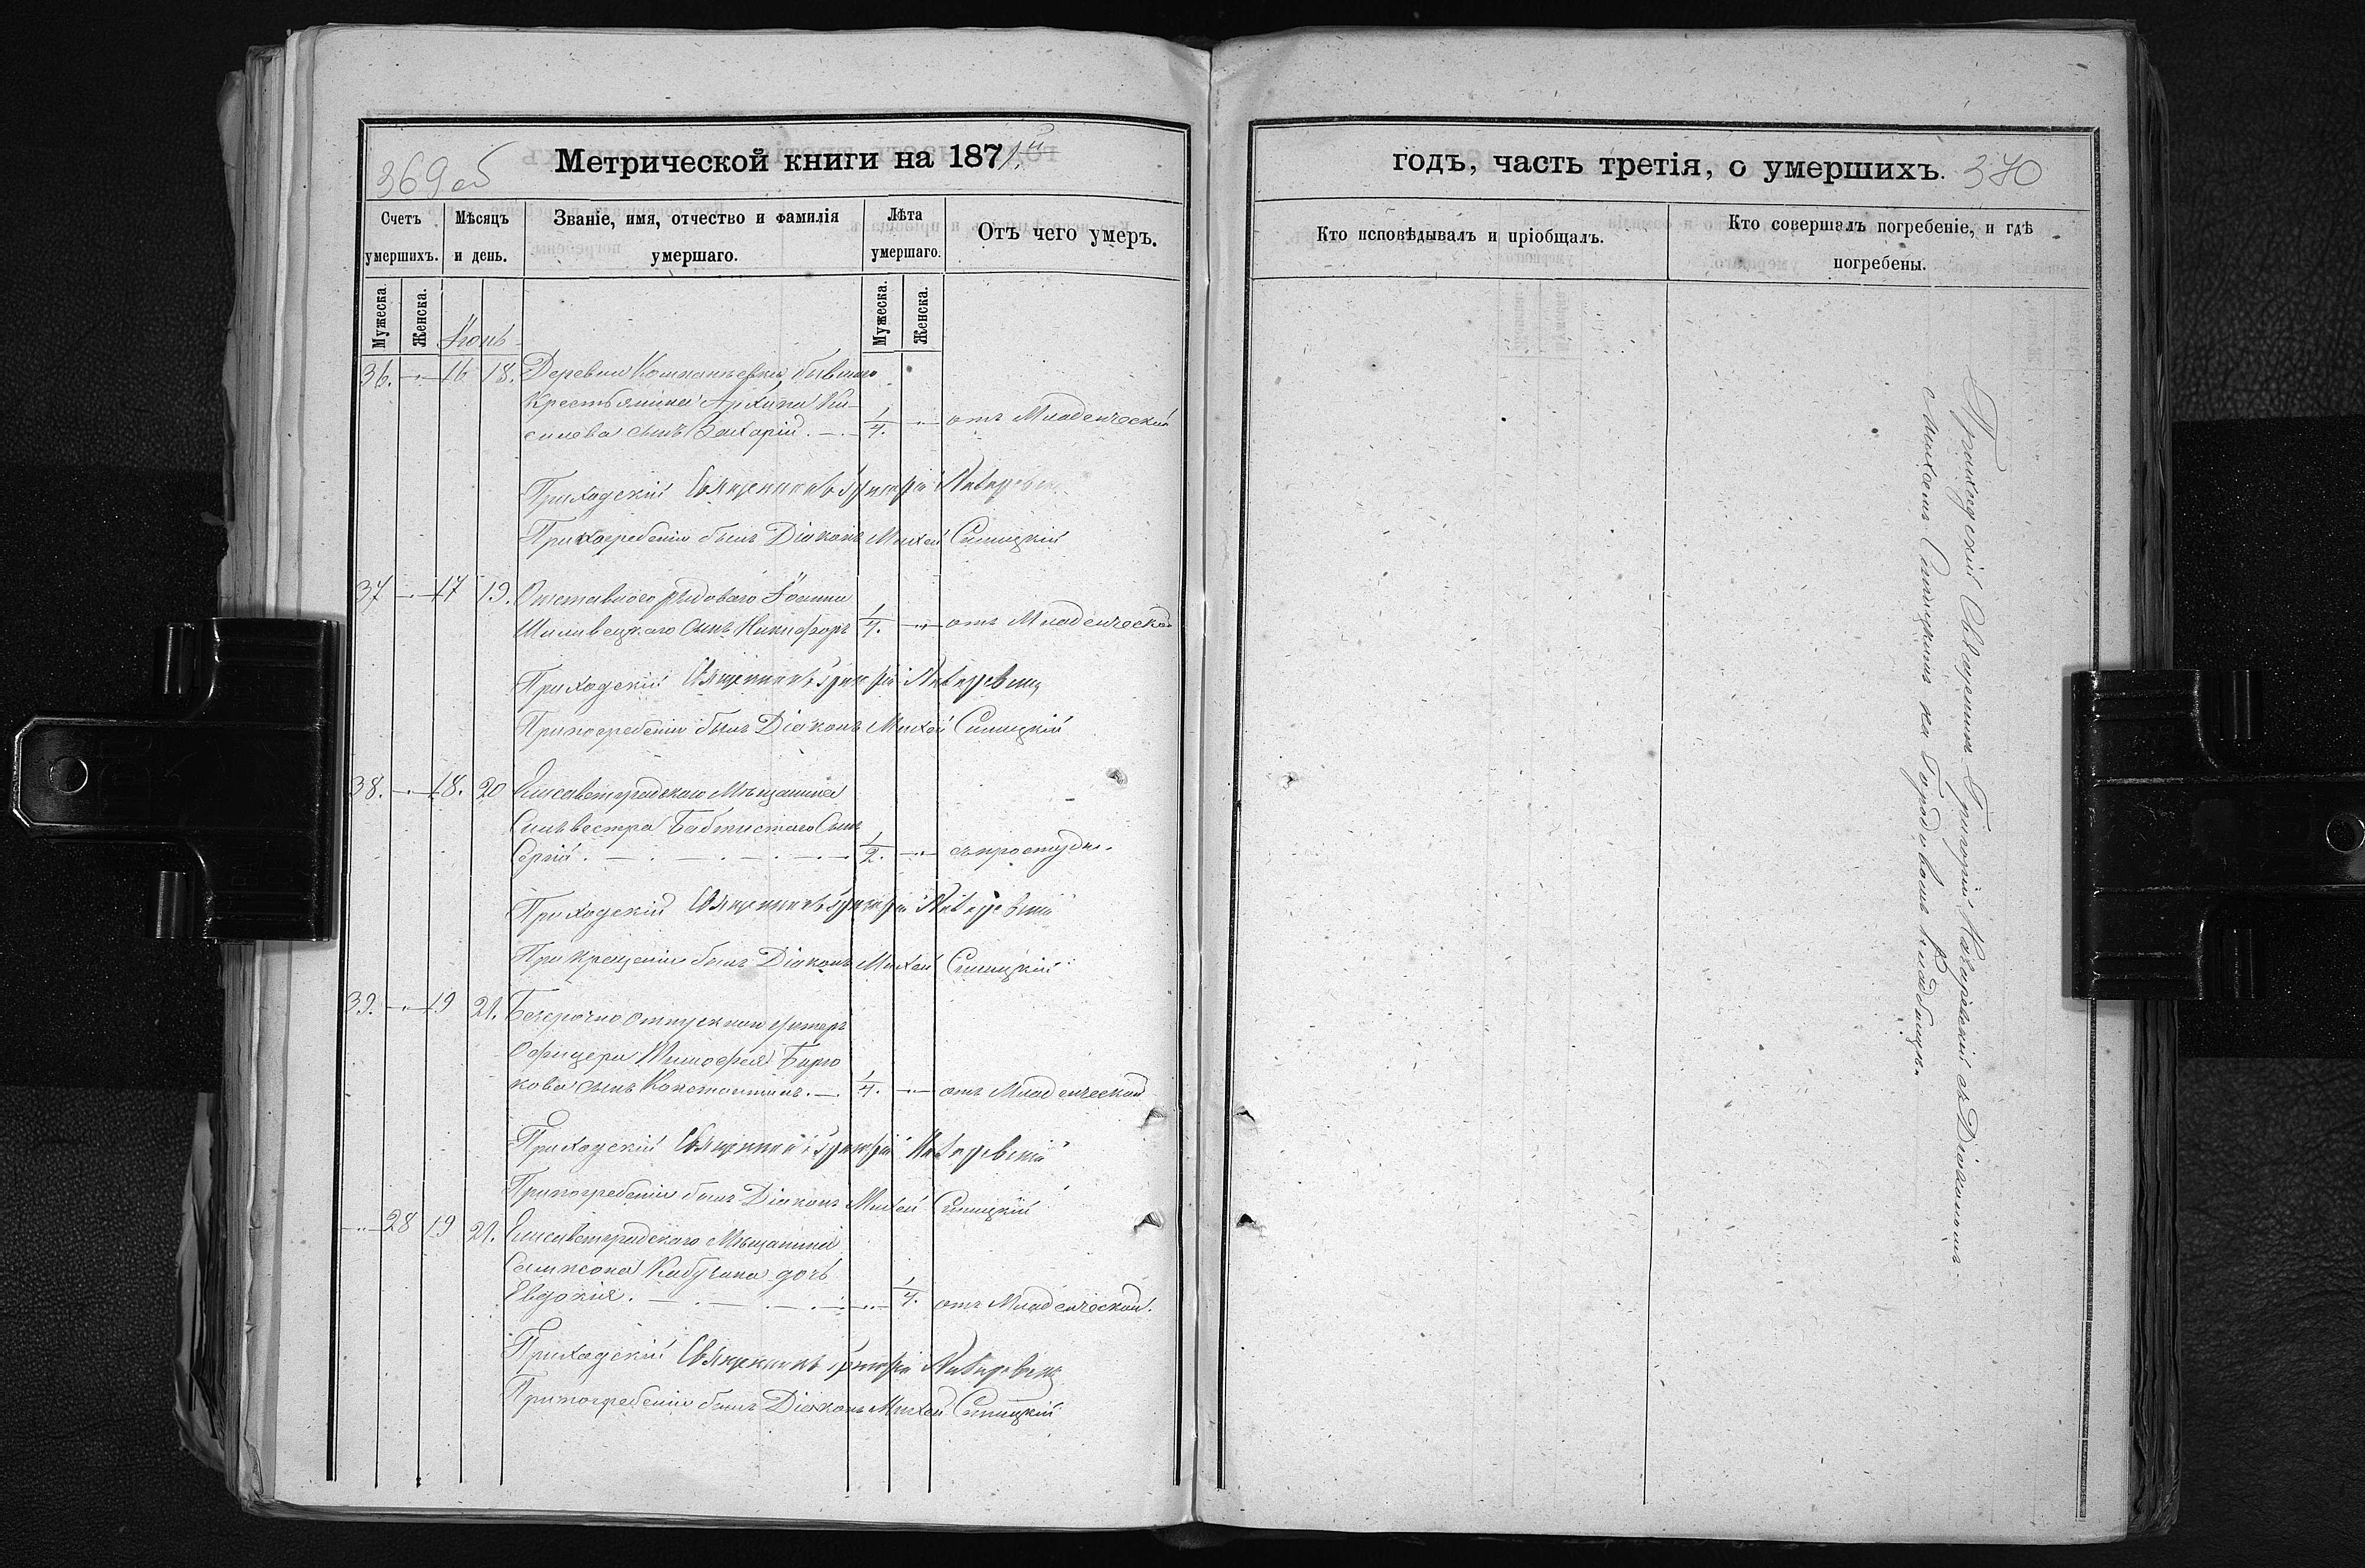 369 об
Метрической книги на 1871й
Счетъ умершихъ.
Мѣсяцъ и день.
Званіе, имя, отчество и фамилія умершаго.
Лѣта умершаго.
Отъ чего умеръ.
Мужеска. Женска.
Мужеска. Женска.
Іюнь
36. 16 18. Деревни бывшаго
крестьянина Архипа Ки-
силева сынъ Захарій. 1/4. отъ Младенческой
Приходскій Священникъ Григорій
При погребеніи былъ Діаконъ Михаи Синицкій
37 17 19. Отставнаго рядоваго Іоанна
сынъ Никифоръ 1/4. отъ Младенческой
Приходскій Священникъ Григорій
При погребеніи былъ Діаконъ Михаи Синицкій
38. 18. 20 Елисаветградскаго Мѣщанина
Сильвестра сынъ
Сергій. 1/2. съ простуды.
Приходскій Священникъ Григорій
При крещеніи былъ Діаконъ Михаи Синицкій
39. 19 21. Безсрочно отпускнаго унтеръ
Офицера Тимофея Бирю
кова сынъ Константинъ. 1/4. отъ Младенческой
Приходскій Священникъ Григорій
При погребеніи былъ Діаконъ Михаи Синицкій
28 19 21. Елисаветградскаго Мѣщанина
Самсона дочь
Евдокія. 1/4. отъ Младенческой.
Приходскій Священникъ Григорій
При погребеніи былъ Діаконъ Михаи Синицкій
годъ, часть третія, о умершихъ. 370
Кто исповѣдывалъ и пріобщалъ.
Кто совершалъ погребеніе, и гдѣ погребены.
Приходскій Священникъ Григорій съ Діакономъ
Михаемъ Синицкимъ на Городовомъ Кладбищѣ.